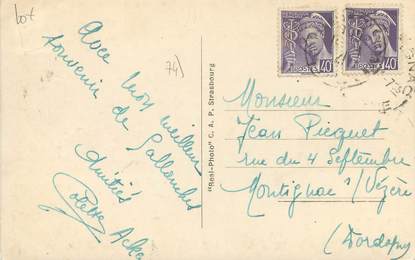 Lot
74)
Avec mon meilleur
souvenir de Sallanches
Amitiés
Colette
"Real-Photo" C. A. P. Strasbourg
POSTES 40
POSTES 40
Monsieur
Jean Piequet
rue du 4 Septembre
Montignac s/Vézère
(Dordogne)